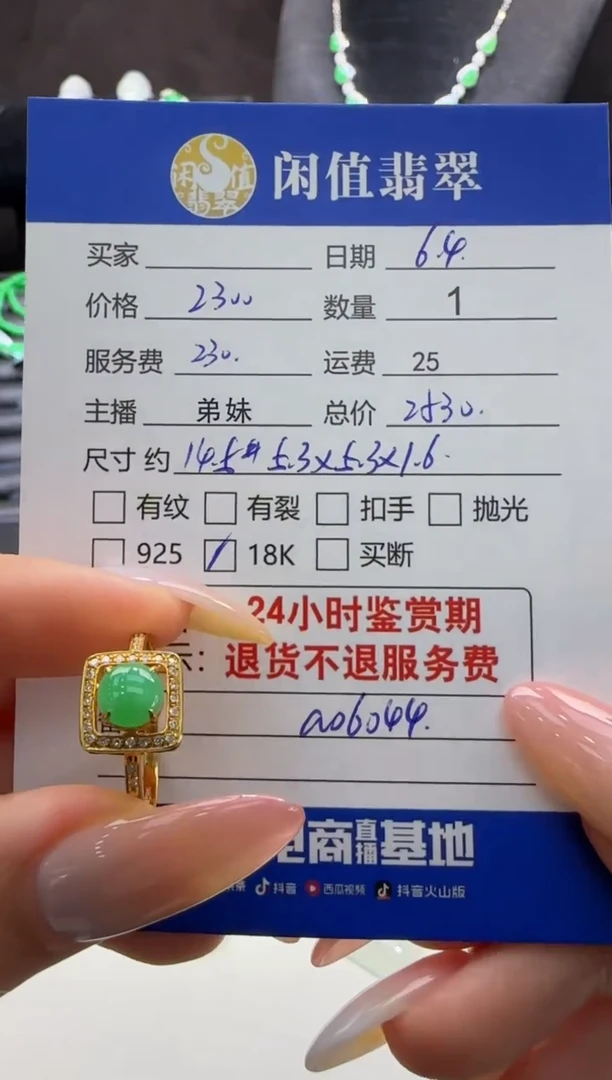 闲值翡翠
闲值翡翠
买家 日期 6.4.
价格 2300 数量 1
服务费 230. 运费 25
主播 弟妹 总价 2530.
尺寸 约 14.5# 5.3×5.3×1.6.
有纹 有裂 扣手 抛光
925 18K 买断
24小时鉴赏期
示：退货不退服务费
a06044.
电商直播基地
抖音 西瓜视频 抖音火山版